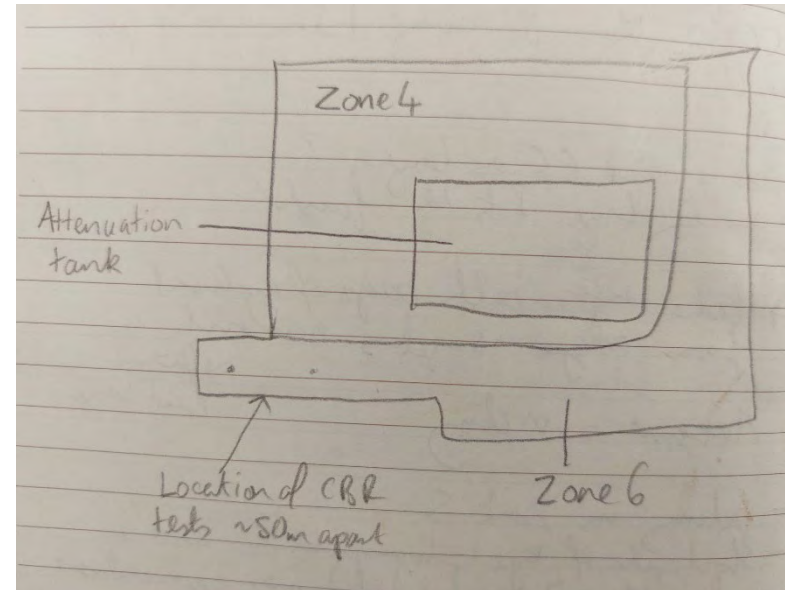 Zone 4
Attenuation
tank
Location of CBR
tests ~50m apart
Zone 6